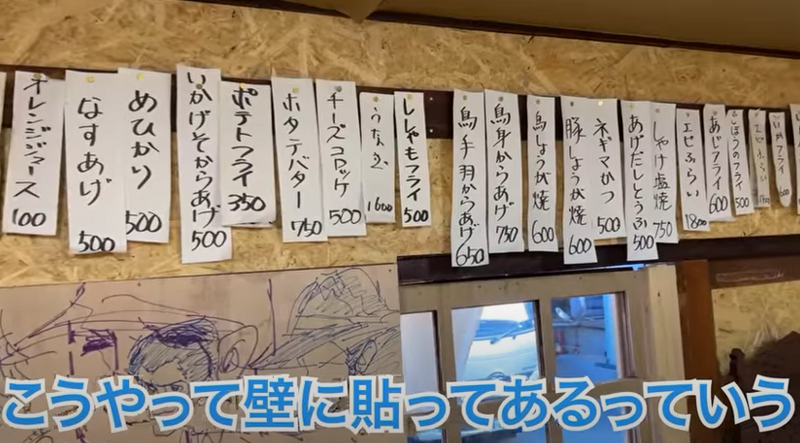 オレンジジュース
100
なすあげ
500
めひかり
500
いかげそからあげ
500
ポテトフライ
350
ホタテバター
750
チーズコロッケ
500
うな丼
1600
ししゃもフライ
500
鳥手羽からあげ
650
鳥身からあげ
750
鳥しょうが焼
600
豚しょうが焼
600
ネギマかつ
500
あげだしとうふ
500
しゃけ塩焼
750
エビふらい
1800
あじフライ
600
ごぼうのフライ
500
いかフライ
こうやって壁に貼ってあるっていう